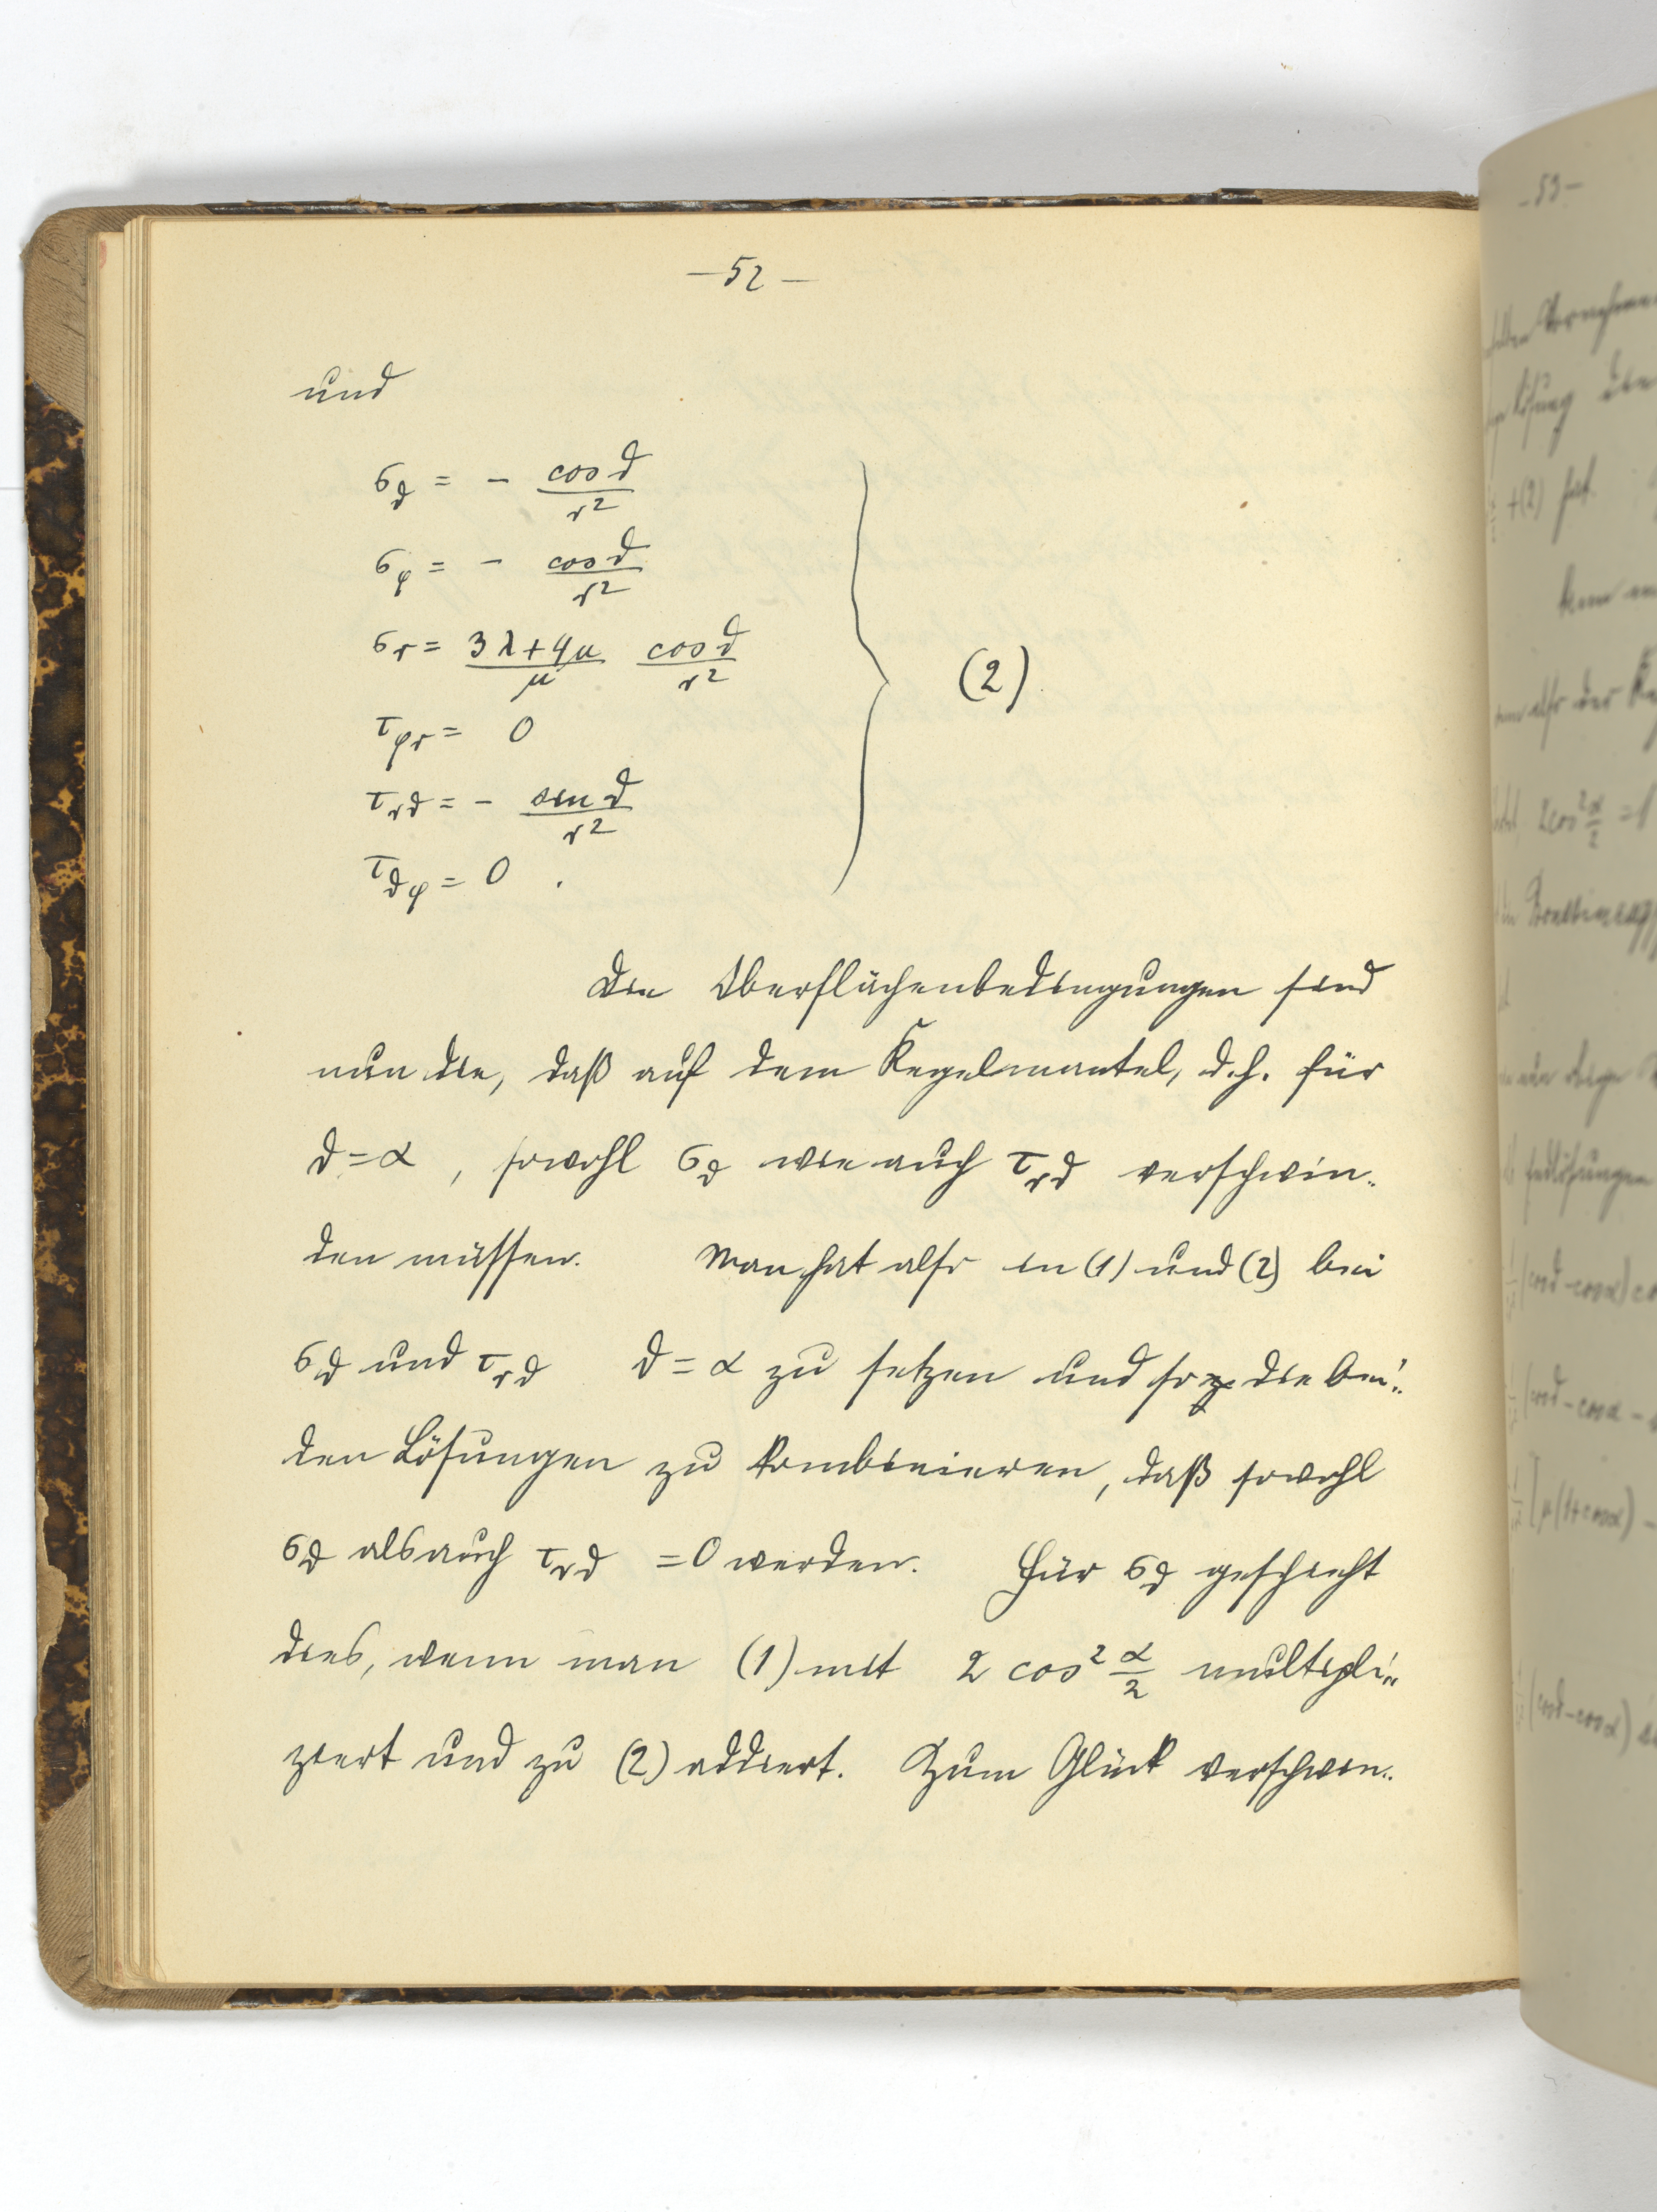 – 52 –
und
σ_ϑ = - cos ϑ / r²
σ_φ = - cos ϑ / r²
σ_r = (3λ+4μ)/μ cos ϑ / r²
τ_φr = 0
(2)
τ_rϑ = - sin ϑ / r²
τ_ϑφ = 0 .
Die Oberflächenbedingungen sind
nun die, daß auf dem Kegelmantel, d.h. für
ϑ = α , sowohl σ_ϑ wie auch τ_rϑ verschwin-
den müssen. Man hat also in (1) und (2) bei
σ_ϑ und τ_rϑ ϑ = α zu setzen und so die bei-
den Lösungen zu kombinieren, daß sowohl
σ_ϑ als auch τ_rϑ = 0 werden. Für σ_ϑ geschieht
dies, wenn man (1) mit 2 cos² α/2 multipli-
ziert und zu (2) addiert. Zum Glück verschwin-
– 53 –
lösung
+(2) hat.
2cos² α/2 = 1
(cosϑ - cosα)
(cosϑ - cosα -
[μ(1+cosα) -
(cosϑ - cosα)